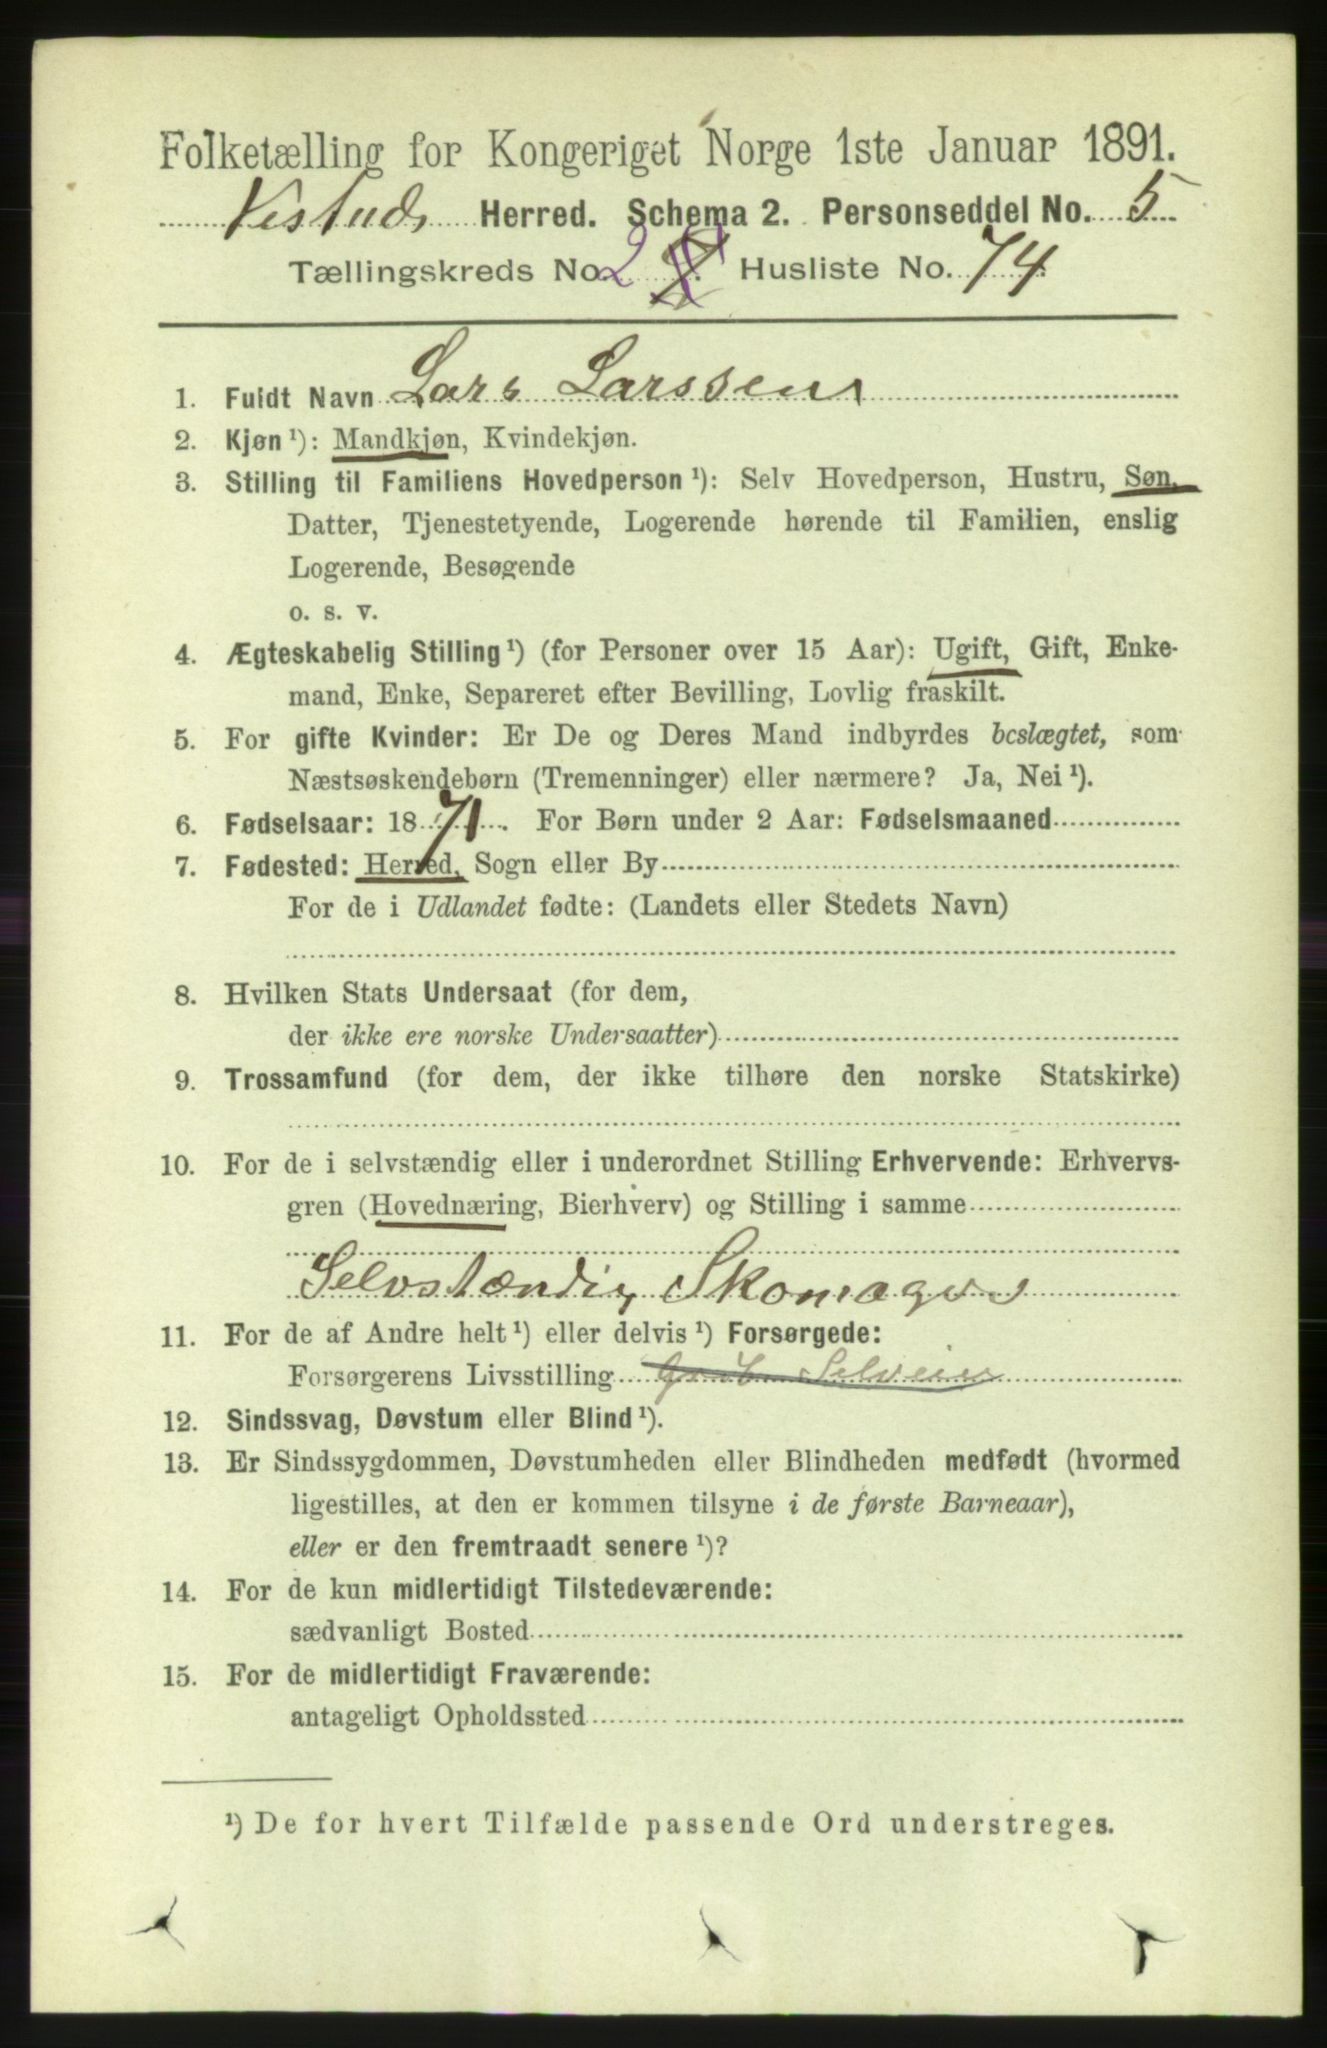 Folketælling for Kongeriget Norge 1ste Januar 1891.
Vestnds Herred. Schema 2. Personseddel No. 5
Tællingskreds No. 2 Husliste No. 74
1. Fuldt Navn Lars Larssen
2. Kjøn ¹): Mandkjøn, Kvindekjøn.
3. Stilling til Familiens Hovedperson ¹): Selv Hovedperson, Hustru, Søn,
Datter, Tjenestetyende, Logerende hørende til Familien, enslig
Logerende, Besøgende
o. s. v.
4. Ægteskabelig Stilling ¹) (for Personer over 15 Aar): Ugift, Gift, Enke-
mand, Enke, Separeret efter Bevilling, Lovlig fraskilt.
5. For gifte Kvinder: Er De og Deres Mand indbyrdes beslægtet, som
Næstsøskendebørn (Tremenninger) eller nærmere? Ja, Nei ¹).
6. Fødselsaar: 1871. For Børn under 2 Aar: Fødselsmaaned
7. Fødested: Herred, Sogn eller By
For de i Udlandet fødte: (Landets eller Stedets Navn)
8. Hvilken Stats Undersaat (for dem,
der ikke ere norske Undersaatter)
9. Trossamfund (for dem, der ikke tilhøre den norske Statskirke)
10. For de i selvstændig eller i underordnet Stilling Erhvervende: Erhvervs-
gren (Hovednæring, Bierhverv) og Stilling i samme
Selvstændig Skomager
11. For de af Andre helt ¹) eller delvis ¹) Forsørgede:
Forsørgerens Livsstilling Selveier
12. Sindssvag, Døvstum eller Blind ¹).
13. Er Sindssygdommen, Døvstumheden eller Blindheden medfødt (hvormed
ligestilles, at den er kommen tilsyne i de første Barneaar),
eller er den fremtraadt senere ¹)?
14. For de kun midlertidigt Tilstedeværende:
sædvanligt Bosted
15. For de midlertidigt Fraværende:
antageligt Opholdssted
¹) De for hvert Tilfælde passende Ord understreges.